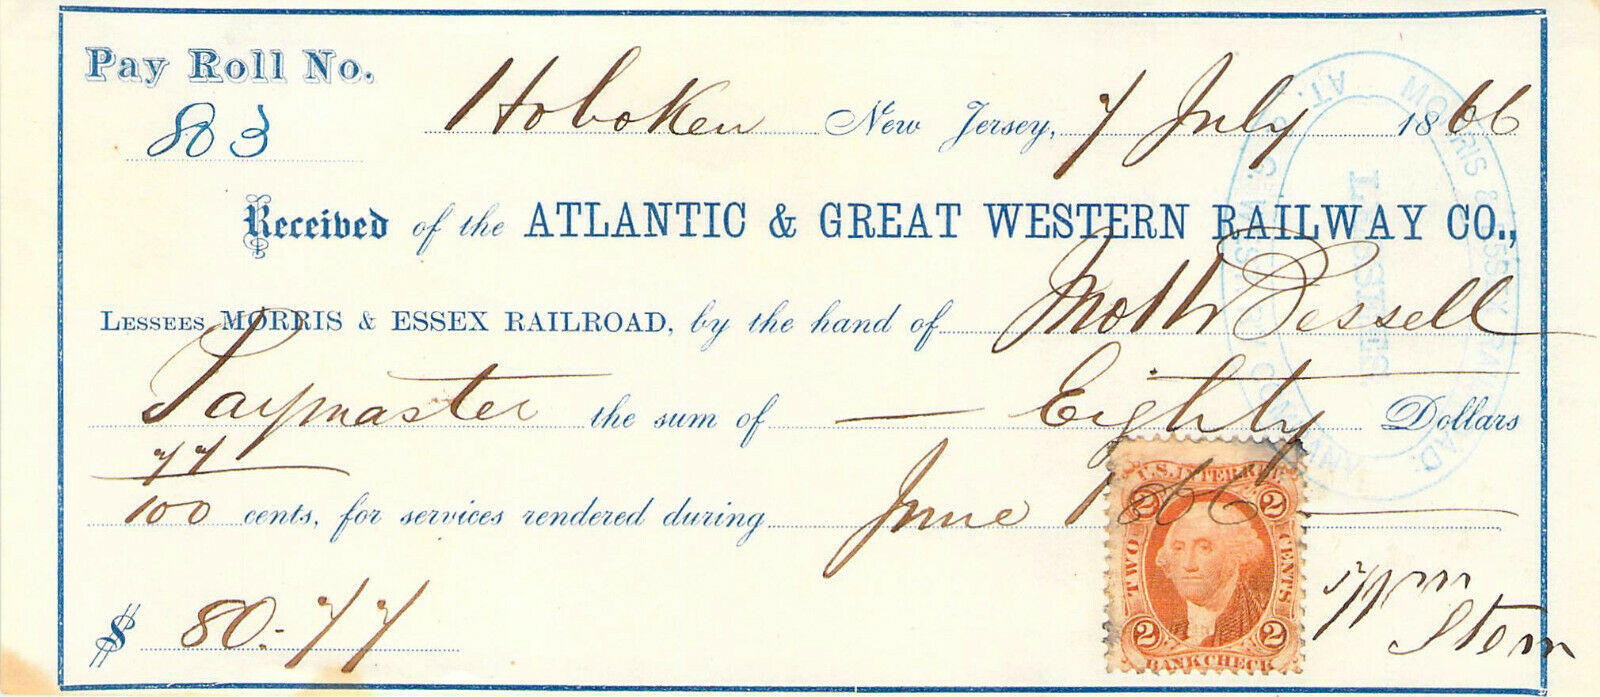 Pay Roll No.
83
Hoboken New Jersey, 7 July 1866
Received of the ATLANTIC & GREAT WESTERN RAILWAY CO.,
LESSEES MORRIS & ESSEX RAILROAD, by the hand of
Paymaster the sum of — Eighty Dollars
77
100 cents, for services rendered during June 1866
$ 80.77
Wm
Stern
U.S. INTER. REV.
2 2
TWO CENTS
2 2
BANK CHECK
MORRIS & ESSEX RAILROAD.
LESSEES